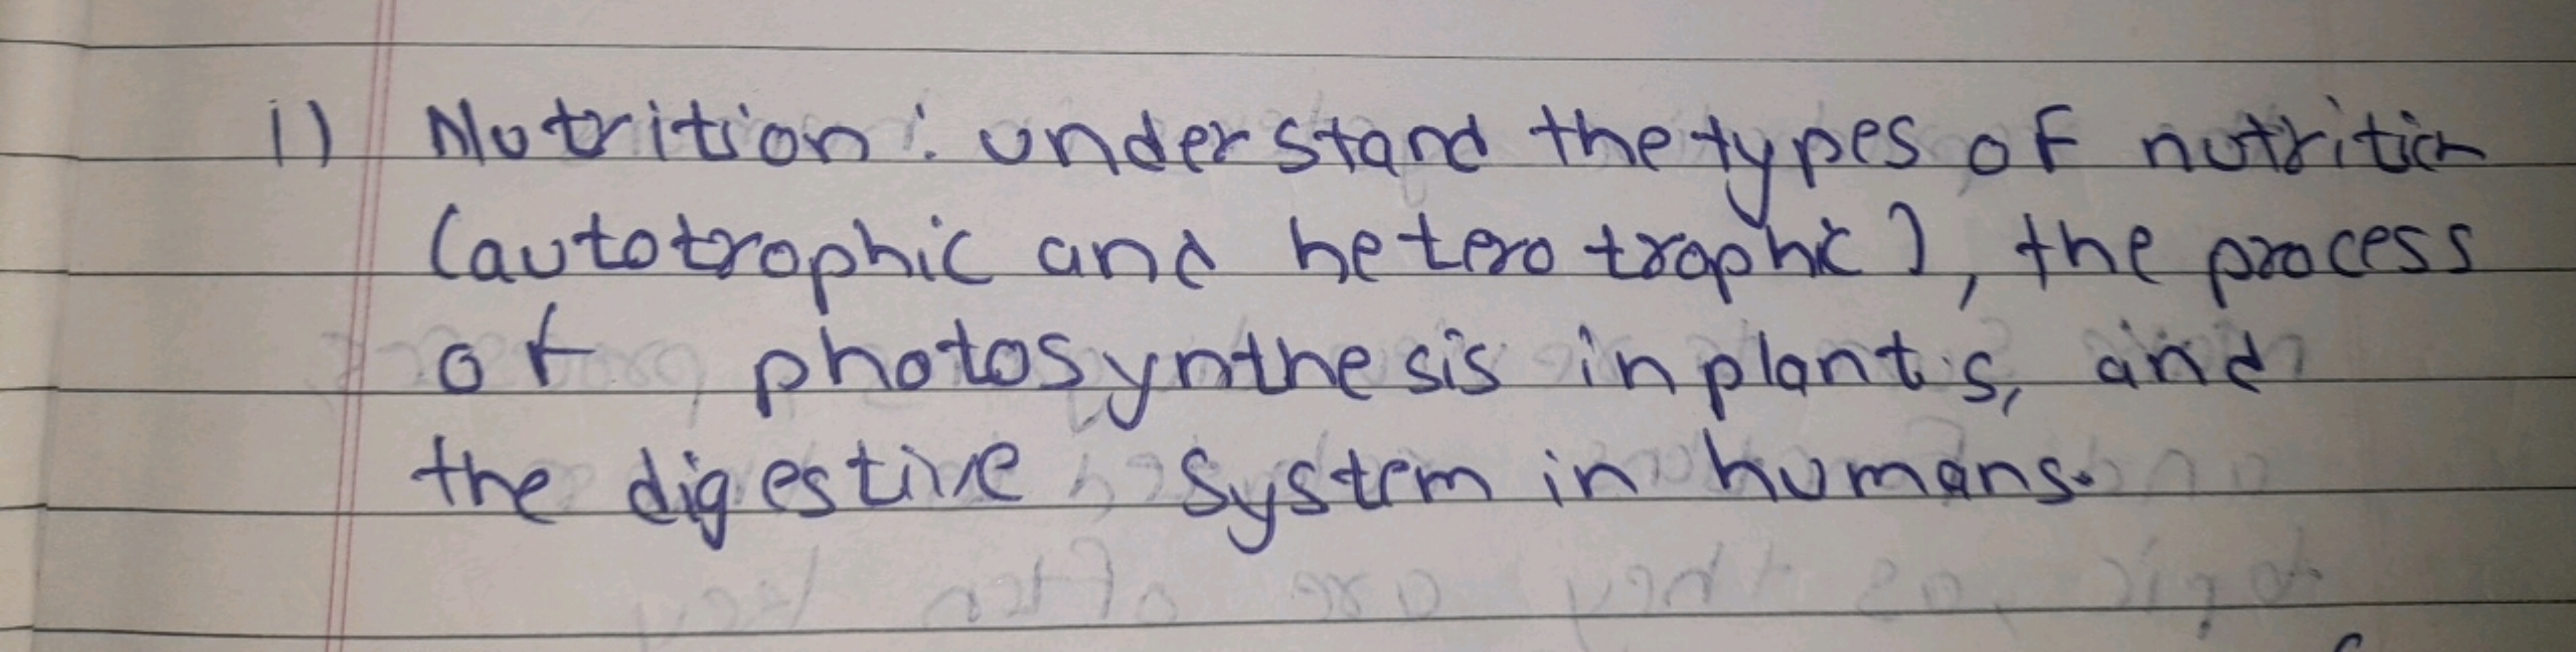 i) Nutrition: understand the types of nutrition
(autotrophic and heterotrophic), the process
of photosynthesis in plants, and
the digestive system in humans.